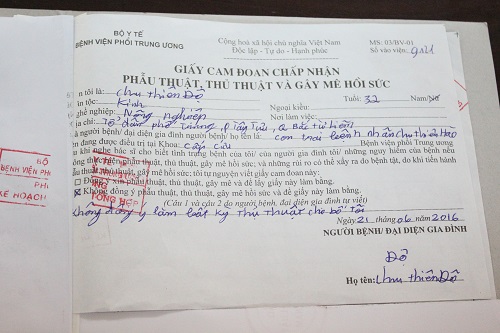 BỘ Y TẾ
BỆNH VIỆN PHỔI TRUNG ƯƠNG
Cộng hoà xã hội chủ nghĩa Việt Nam
Độc lập - Tự do - Hạnh phúc
MS: 03/BV-01
Số vào viện:
GIẤY CAM ĐOAN CHẤP NHẬN
PHẪU THUẬT, THỦ THUẬT VÀ GÂY MÊ HỒI SỨC
n tôi là: Chu Thiên Độ Tuổi: 32 Nam/Nữ
n tộc: Kinh Ngoại kiều:
ghề nghiệp: Nông nghiệp Nơi làm việc:
a chỉ: Tổ dân phố Trung, p Tây Tựu, Q Bắc từ Liêm
à người bệnh/ đại diện gia đình người bệnh/ họ tên là: con trai bệnh nhân Chu Thiên Hào
ện đang được điều trị tại Khoa: cấp cứu Bệnh viện Phổi Trung ương
i khi nghe bác sĩ cho biết tình trạng bệnh của tôi/ của người gia đình tôi/ những nguy hiểm của bệnh nếu
ông thực hiện phẫu thuật, thủ thuật, gây mê hồi sức, và những rủi ro có thể xảy ra do bệnh tật, do khi tiến hành
ẫu thuật, thủ thuật, gây mê hồi sức: tôi tự nguyện viết giấy cam đoan này:
Đồng ý phẫu thuật, thủ thuật, gây mê và để lấy giấy này làm bằng.
Không đồng ý phẫu thuật, thủ thuật, gây mê và để lấy giấy này làm bằng.
(Câu 1 và câu 2 do người bệnh, đại diện gia đình tự viết)
không đồng ý làm bất kỳ thủ thuật cho bố tôi
Ngày 21 tháng 06 năm 2016
NGƯỜI BỆNH/ ĐẠI DIỆN GIA ĐÌNH
Độ
Họ tên: Chu Thiên Độ
BỘ
BỆNH VIỆN PH
KẾ HOẠCH
TỔNG HỢP